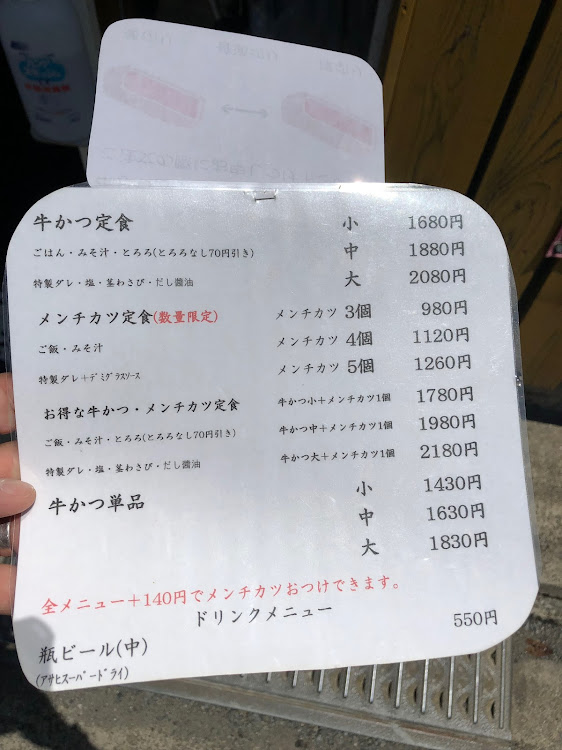 牛かつ定食 小 1680円
ごはん・みそ汁・とろろ(とろろなし70円引き) 中 1880円
特製ダレ・塩・茎わさび・だし醤油 大 2080円
メンチカツ定食(数量限定) メンチカツ 3個 980円
ご飯・みそ汁 メンチカツ 4個 1120円
特製ダレ+デミグラスソース メンチカツ 5個 1260円
お得な牛かつ・メンチカツ定食 牛かつ小+メンチカツ1個 1780円
ご飯・みそ汁・とろろ(とろろなし70円引き) 牛かつ中+メンチカツ1個 1980円
特製ダレ・塩・茎わさび・だし醤油 牛かつ大+メンチカツ1個 2180円
牛かつ単品 小 1430円
中 1630円
大 1830円
全メニュー+140円でメンチカツおつけできます。
ドリンクメニュー
瓶ビール(中) 550円
(アサヒスーパードライ)